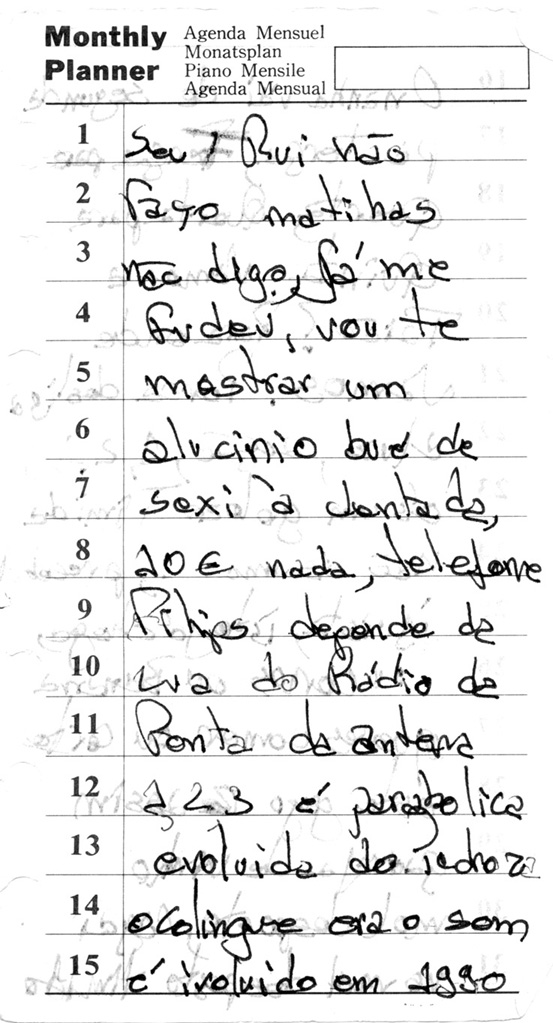 Monthly Planner
Agenda Mensuel
Monatsplan
Piano Mensile
Agenda Mensual
1 Seu / Rui não
2 faço matihas
3 não digo, já me
4 fudeu, vou te
5 mostrar um
6 alucinio bué de
7 sexi à dontade,
8 20 € nada, telefone
9 Filhjos depende da
10 Lua do Rádio de
11 Ponta da antena
12 123 é parabolica
13 evoluida do
14 ocolingue era o som
15 é ivoluido em 1990